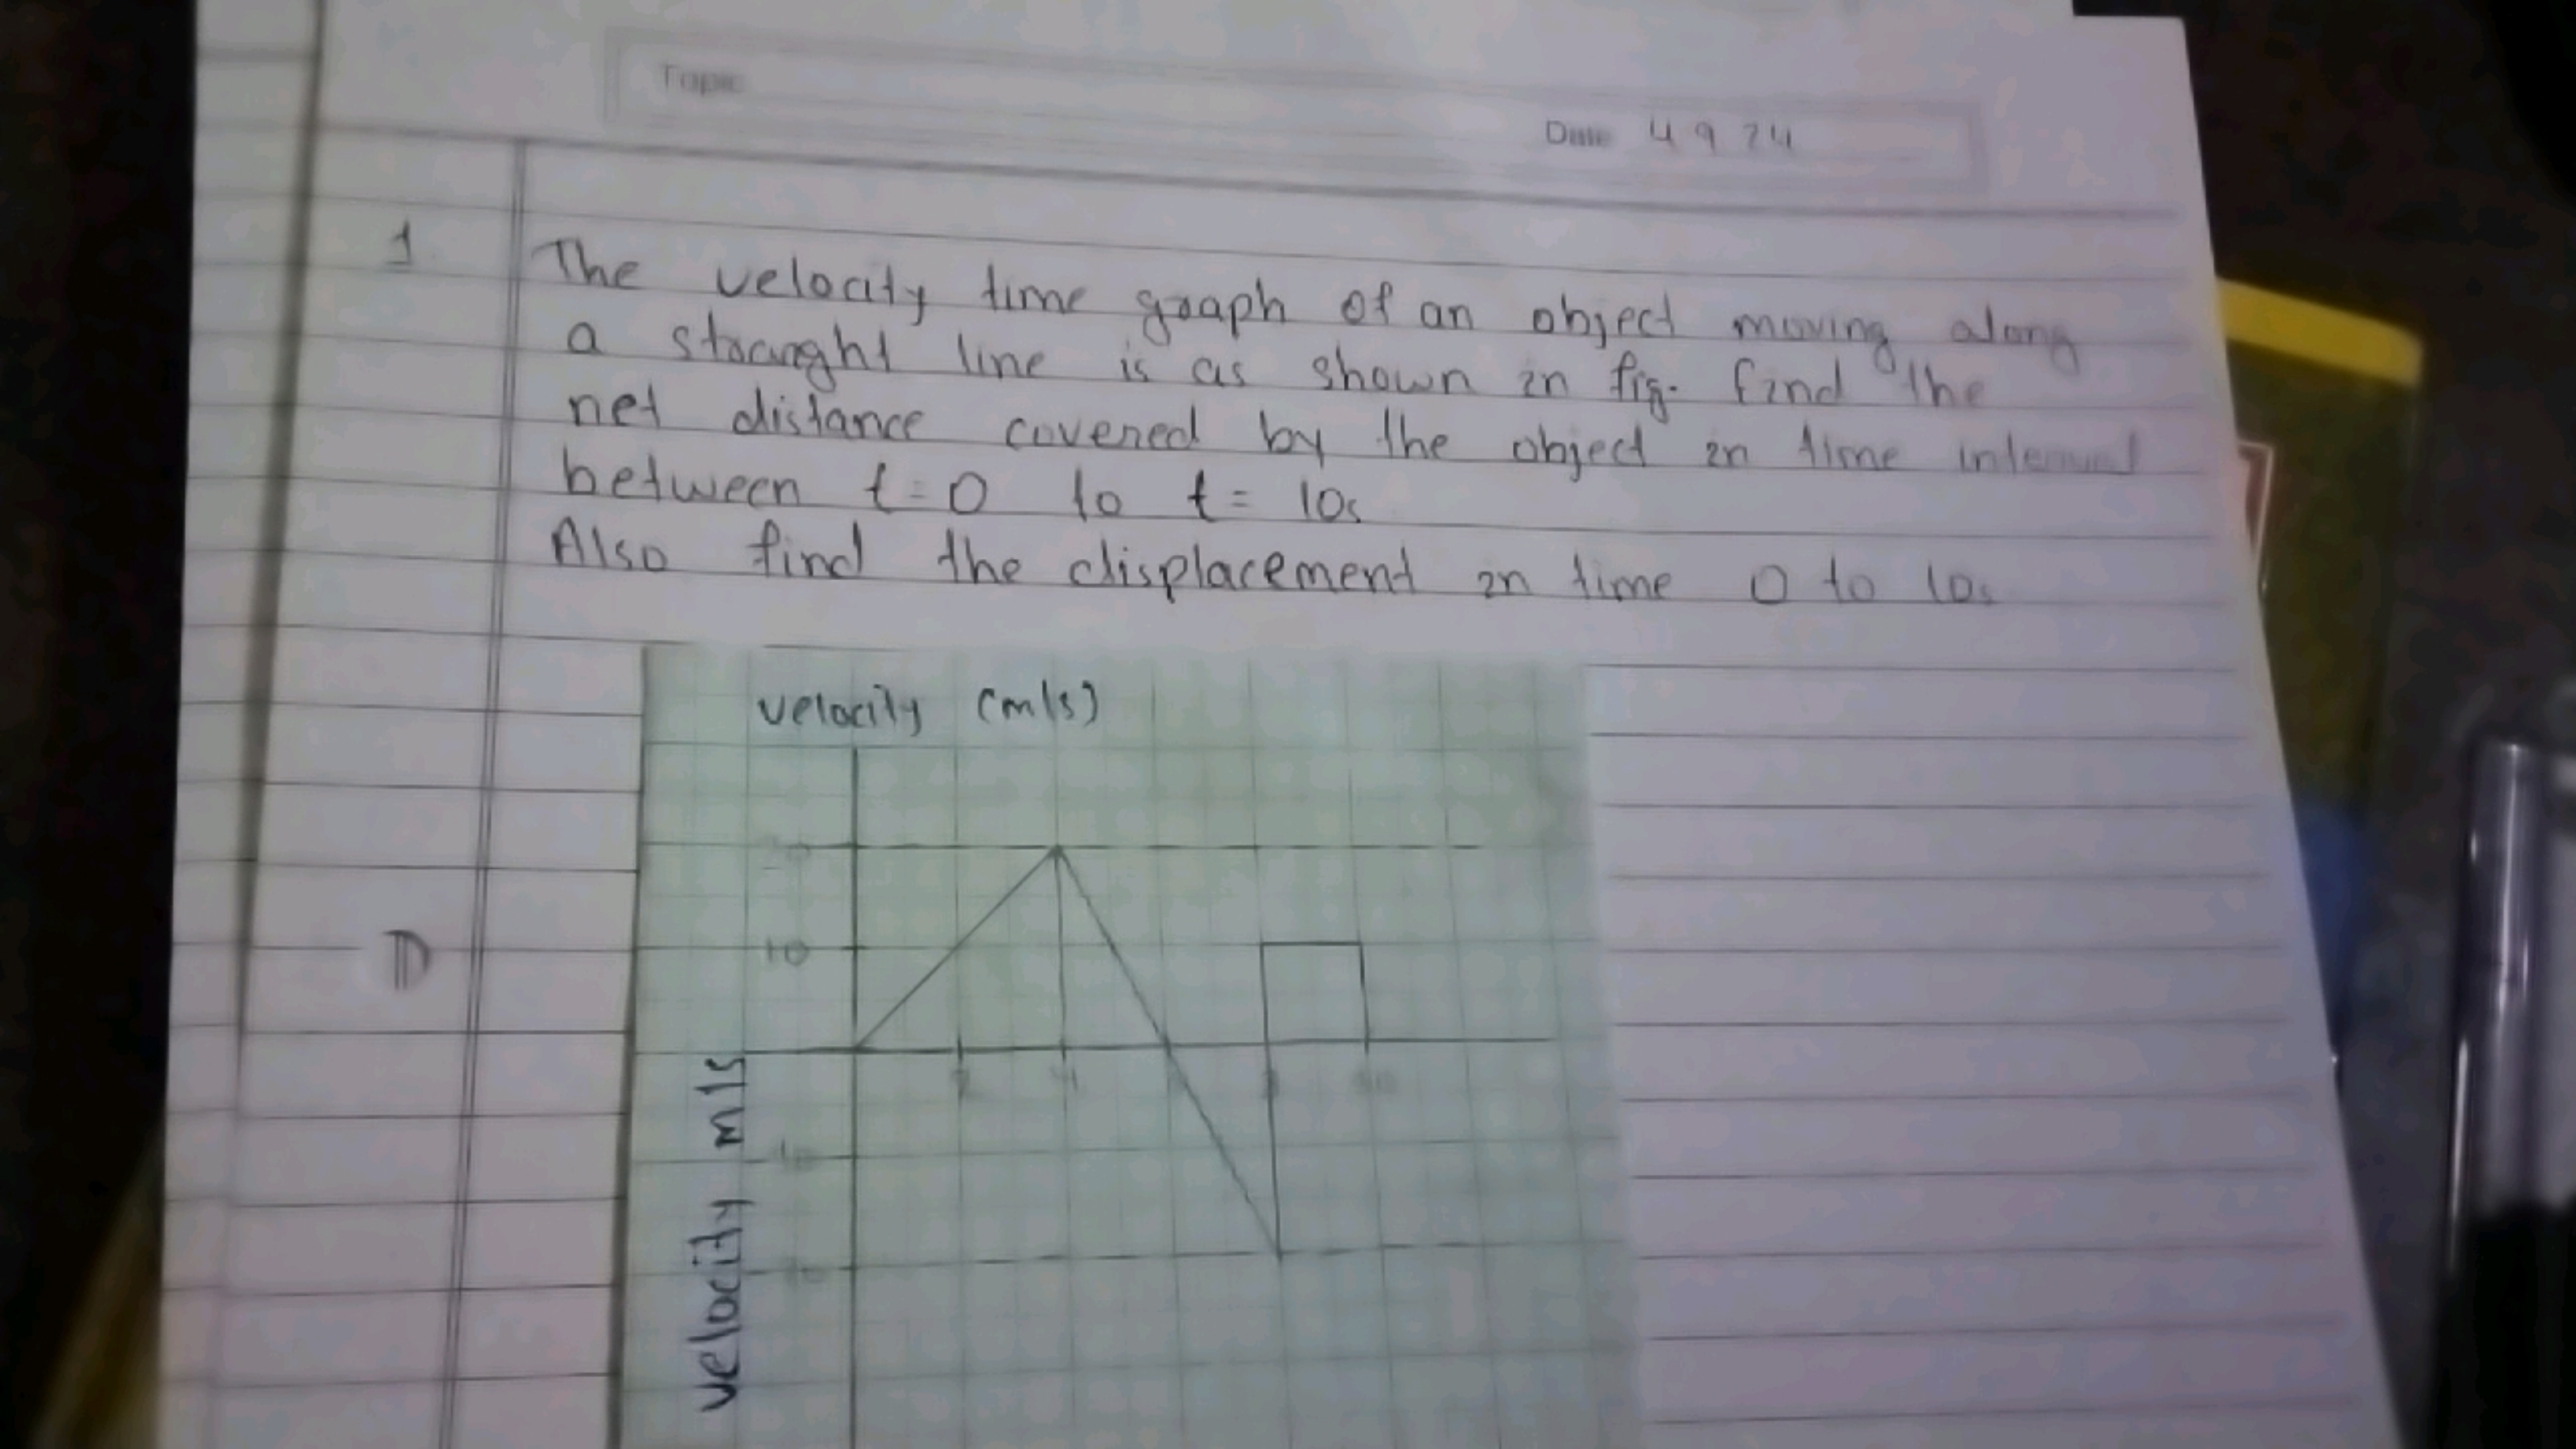 Topic
Date 4 9 24
1 The velocity time graph of an object moving along
a straight line is as shown in fig. find the
net distance covered by the object in time interval
between t = 0 to t = 10s
Also find the displacement in time 0 to 10s
velocity (m/s)
20
10
2 4 8 10
velocity m/s